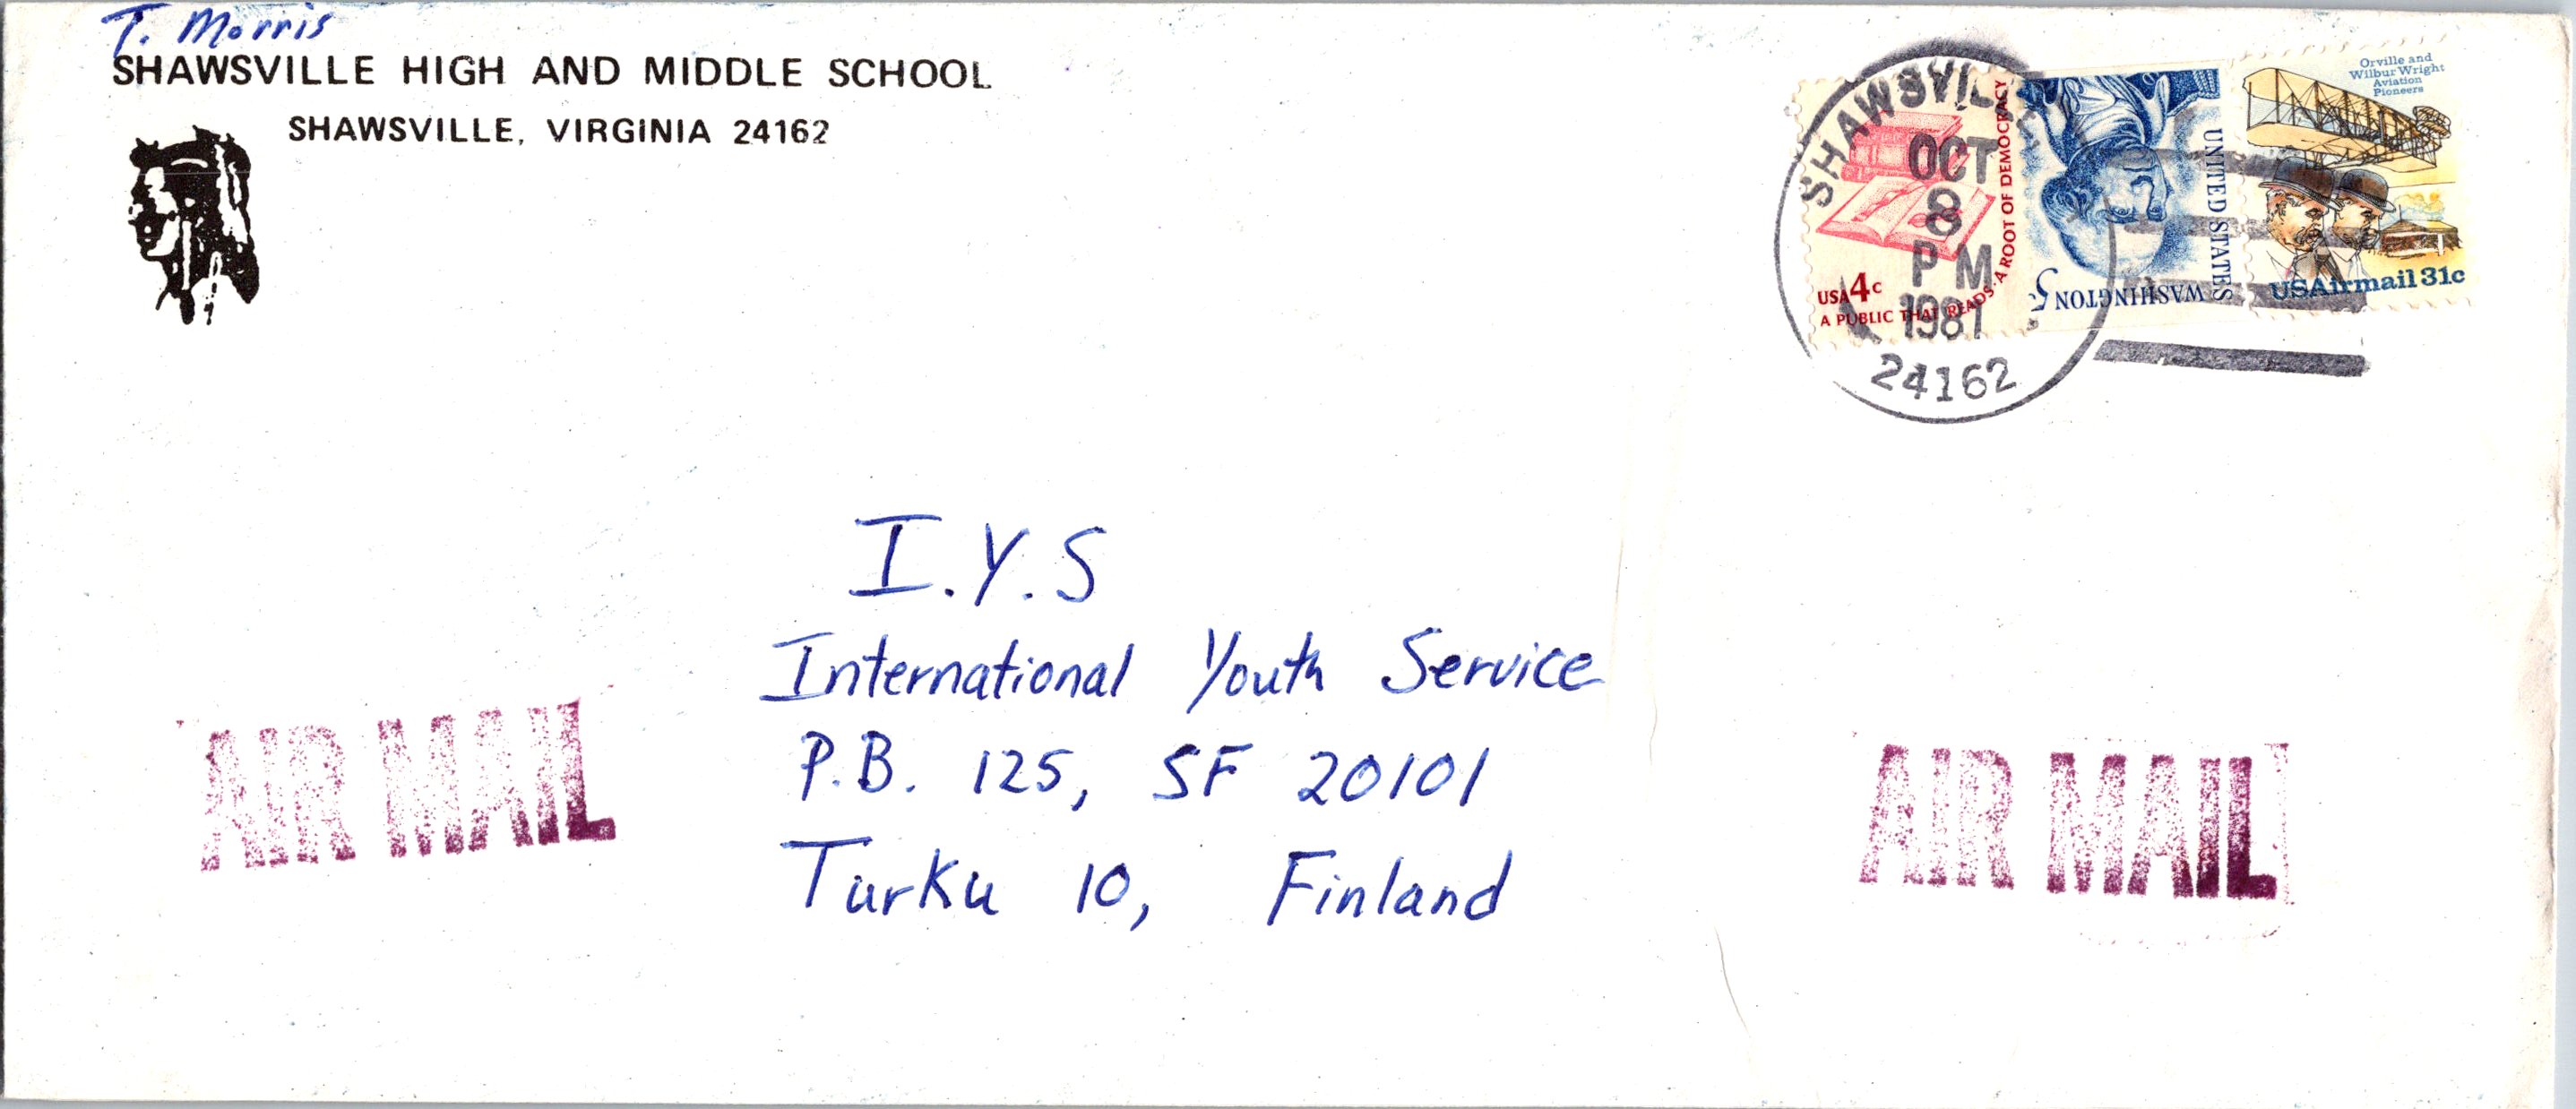 T. Morris
SHAWSVILLE HIGH AND MIDDLE SCHOOL
SHAWSVILLE, VIRGINIA 24162
SHAWSVILLE
OCT
8
PM
1981
24162
USA 4c
A PUBLIC THAT READS · A ROOT OF DEMOCRACY
UNITED STATES
WASHINGTON 5
Orville and
Wilbur Wright
Aviation
Pioneers
USAirmail 31c
I.Y.S
International Youth Service
P.B. 125, SF 20101
Turku 10, Finland
AIR MAIL
AIR MAIL